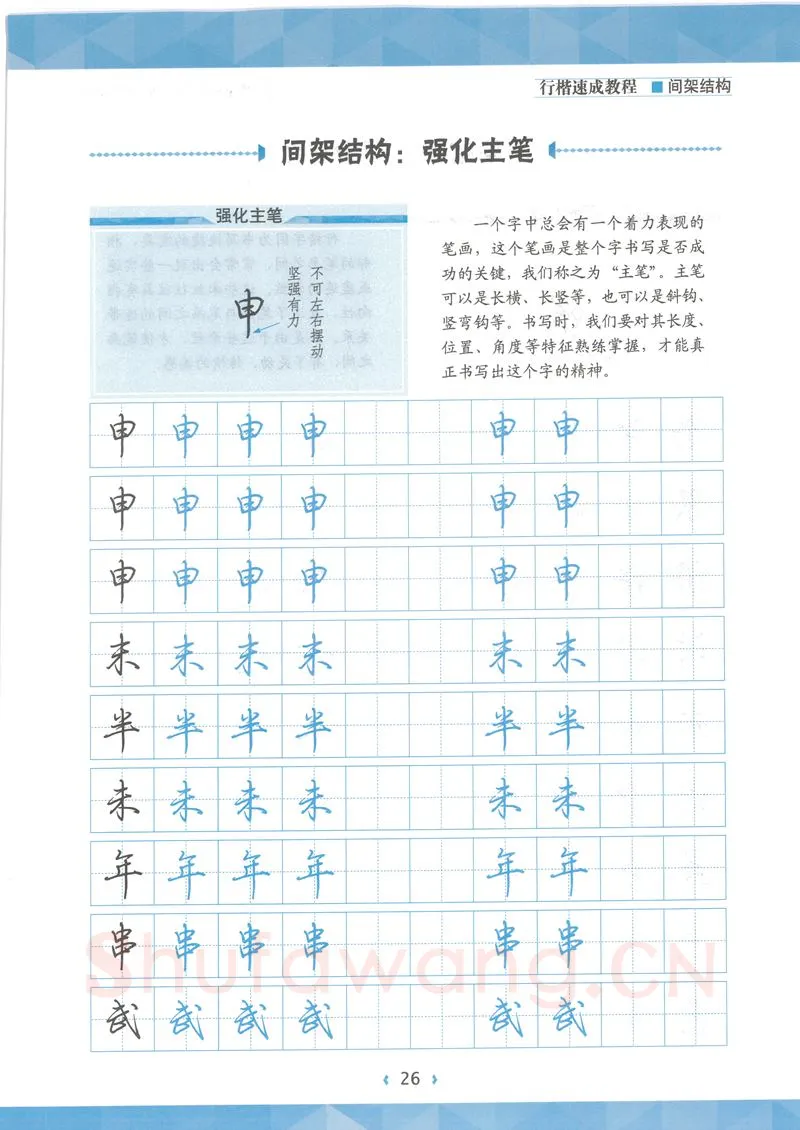 行楷速成教程 ■ 间架结构
间架结构：强化主笔
强化主笔
申
不可左右摆动
坚强有力
一个字中总会有一个着力表现的
笔画，这个笔画是整个字书写是否成
功的关键，我们称之为“主笔”。主笔
可以是长横、长竖等，也可以是斜钩、
竖弯钩等。书写时，我们要对其长度、
位置、角度等特征熟练掌握，才能真
正书写出这个字的精神。
申 申 申 申 申 申
申 申 申 申 申 申
申 申 申 申 申 申
末 末 末 末 末 末
半 半 半 半 半 半
未 未 未 未 未 未
年 年 年 年 年 年
串 串 串 串 串 串
武 武 武 武 武 武
Shufawang.CN
26